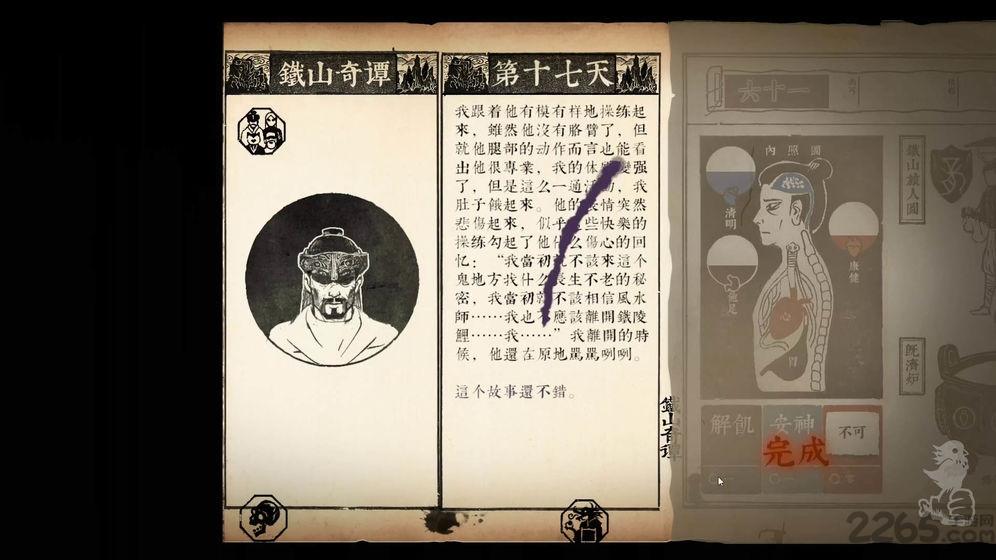 鐵山奇谭
第十七天
我跟着他有模有样地操练起
來，雖然他沒有胳臂了，但
就他腿部的动作而言也能看
出他很專業，我的体 變强
了，但是這么一通活动，我
肚子餓起來。他的表情突然
悲傷起來，似乎這些快樂的
操练勾起了他什么傷心的回
忆：“我當初就不該來這个
鬼地方我什么長生不老的秘
密，我當初就不該相信風水
師……我也不應該離開鐵陵
鯉……我……”我離開的時
候，他還在原地罵罵咧咧。
這个故事還不错。
鐵山奇谭
六十一
內照圖
清明
康健
心
胃
解飢
安神
不可
完成
鐵山旅人圖
既濟炉
2265.com